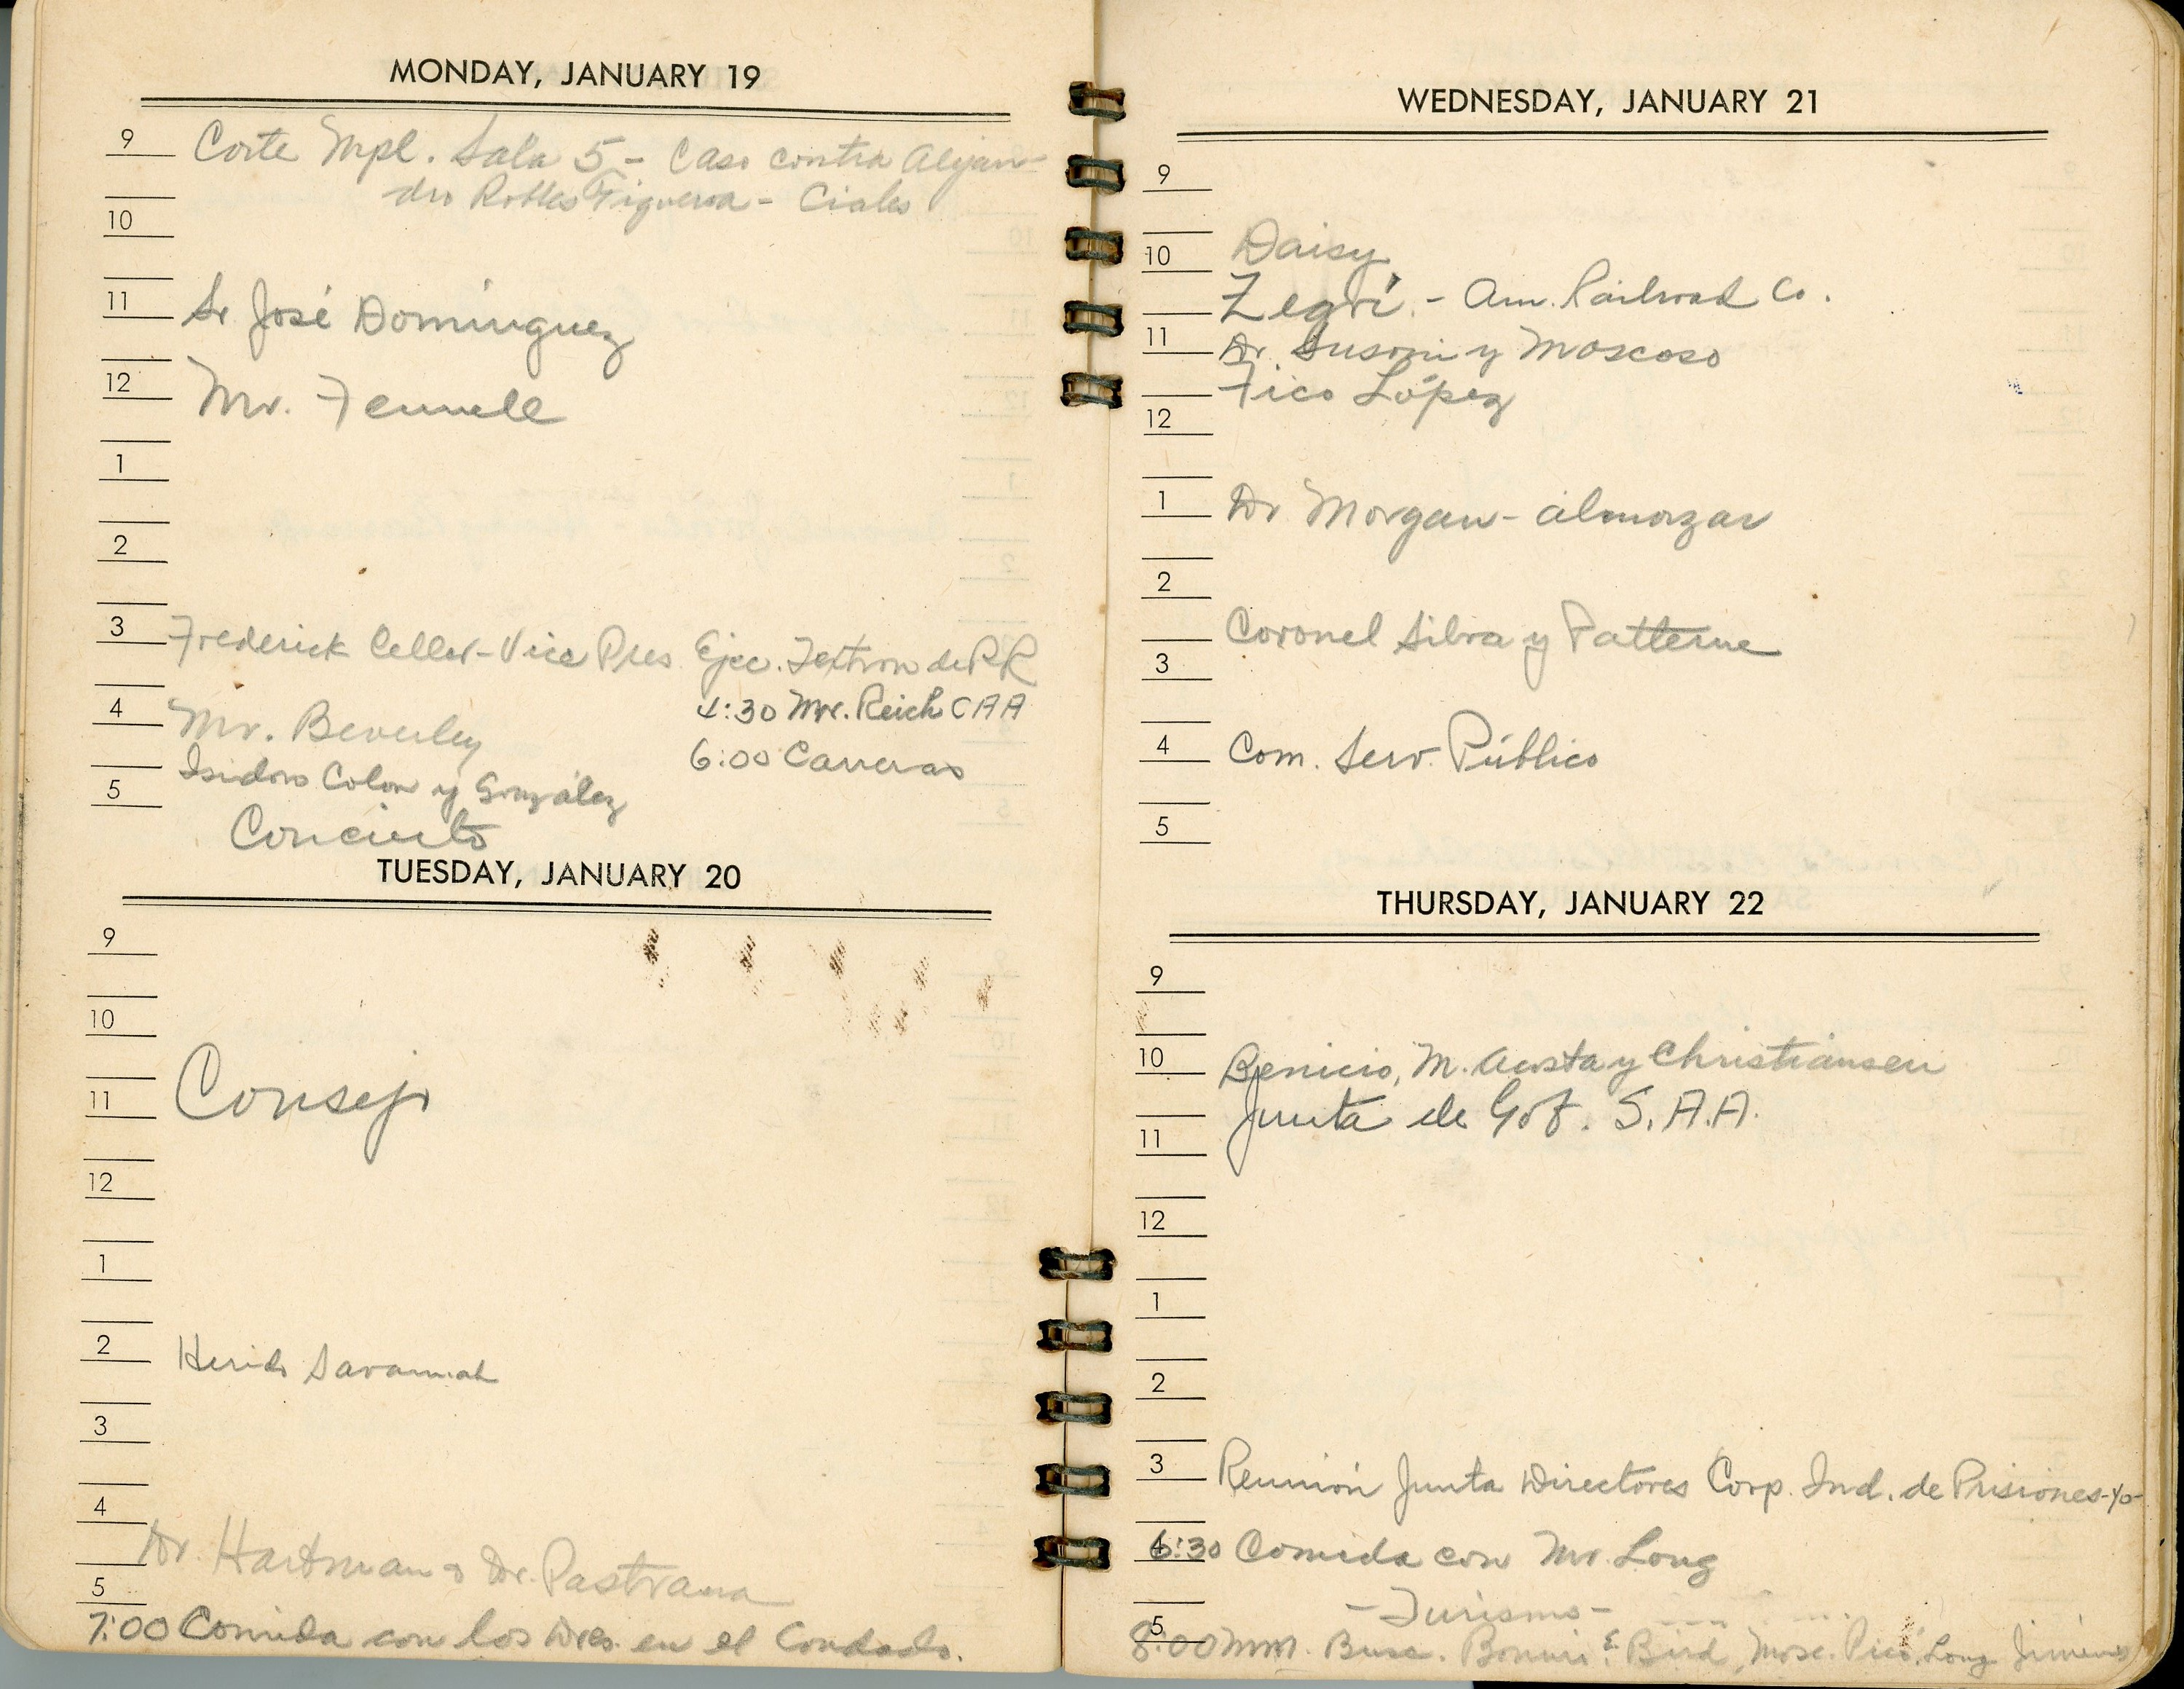 MONDAY, JANUARY 19
9 Corte Mpl. Sala 5 - Caso contra Alejan-
dro Robles Figueroa - Ciales
10
11 Sr José Domínguez
12 Mr. Fennell
1
2
3 Frederick Celler - Vice Pres Ejec. Textron de P R
4:30 Mr. Reich CAA
4 Mr. Beverley
6:00 Carreras
Isidoro Colon y González
5
Concierto
TUESDAY, JANUARY 20
9
10
11 Consejo
12
1
2 Savannah
3
4
Dr. Hartman & Dr. Pastrana
5
7:00 Comida con los Dres. en el Condado.
WEDNESDAY, JANUARY 21
9
10 Daisy
Zegrí - Am. Railroad Co.
11 Dr. Susoni y Moscoso
Fico López
12
1 Dr Morgan - almorzar
2
Coronel Silva y Patterne
3
4 Com. Serv. Público
5
THURSDAY, JANUARY 22
9
10 Benicio, M. Acosta y Christiansen
Junta de Gob. S.A.A.
11
12
1
2
3 Reunión Junta Directores Corp. Ind. de Prisiones - yo -
4
6:30 Comida con Mr. Long
- Turismo -
5
8:00 Busc. & Bird, Mosc. Picó, Long Jiménez